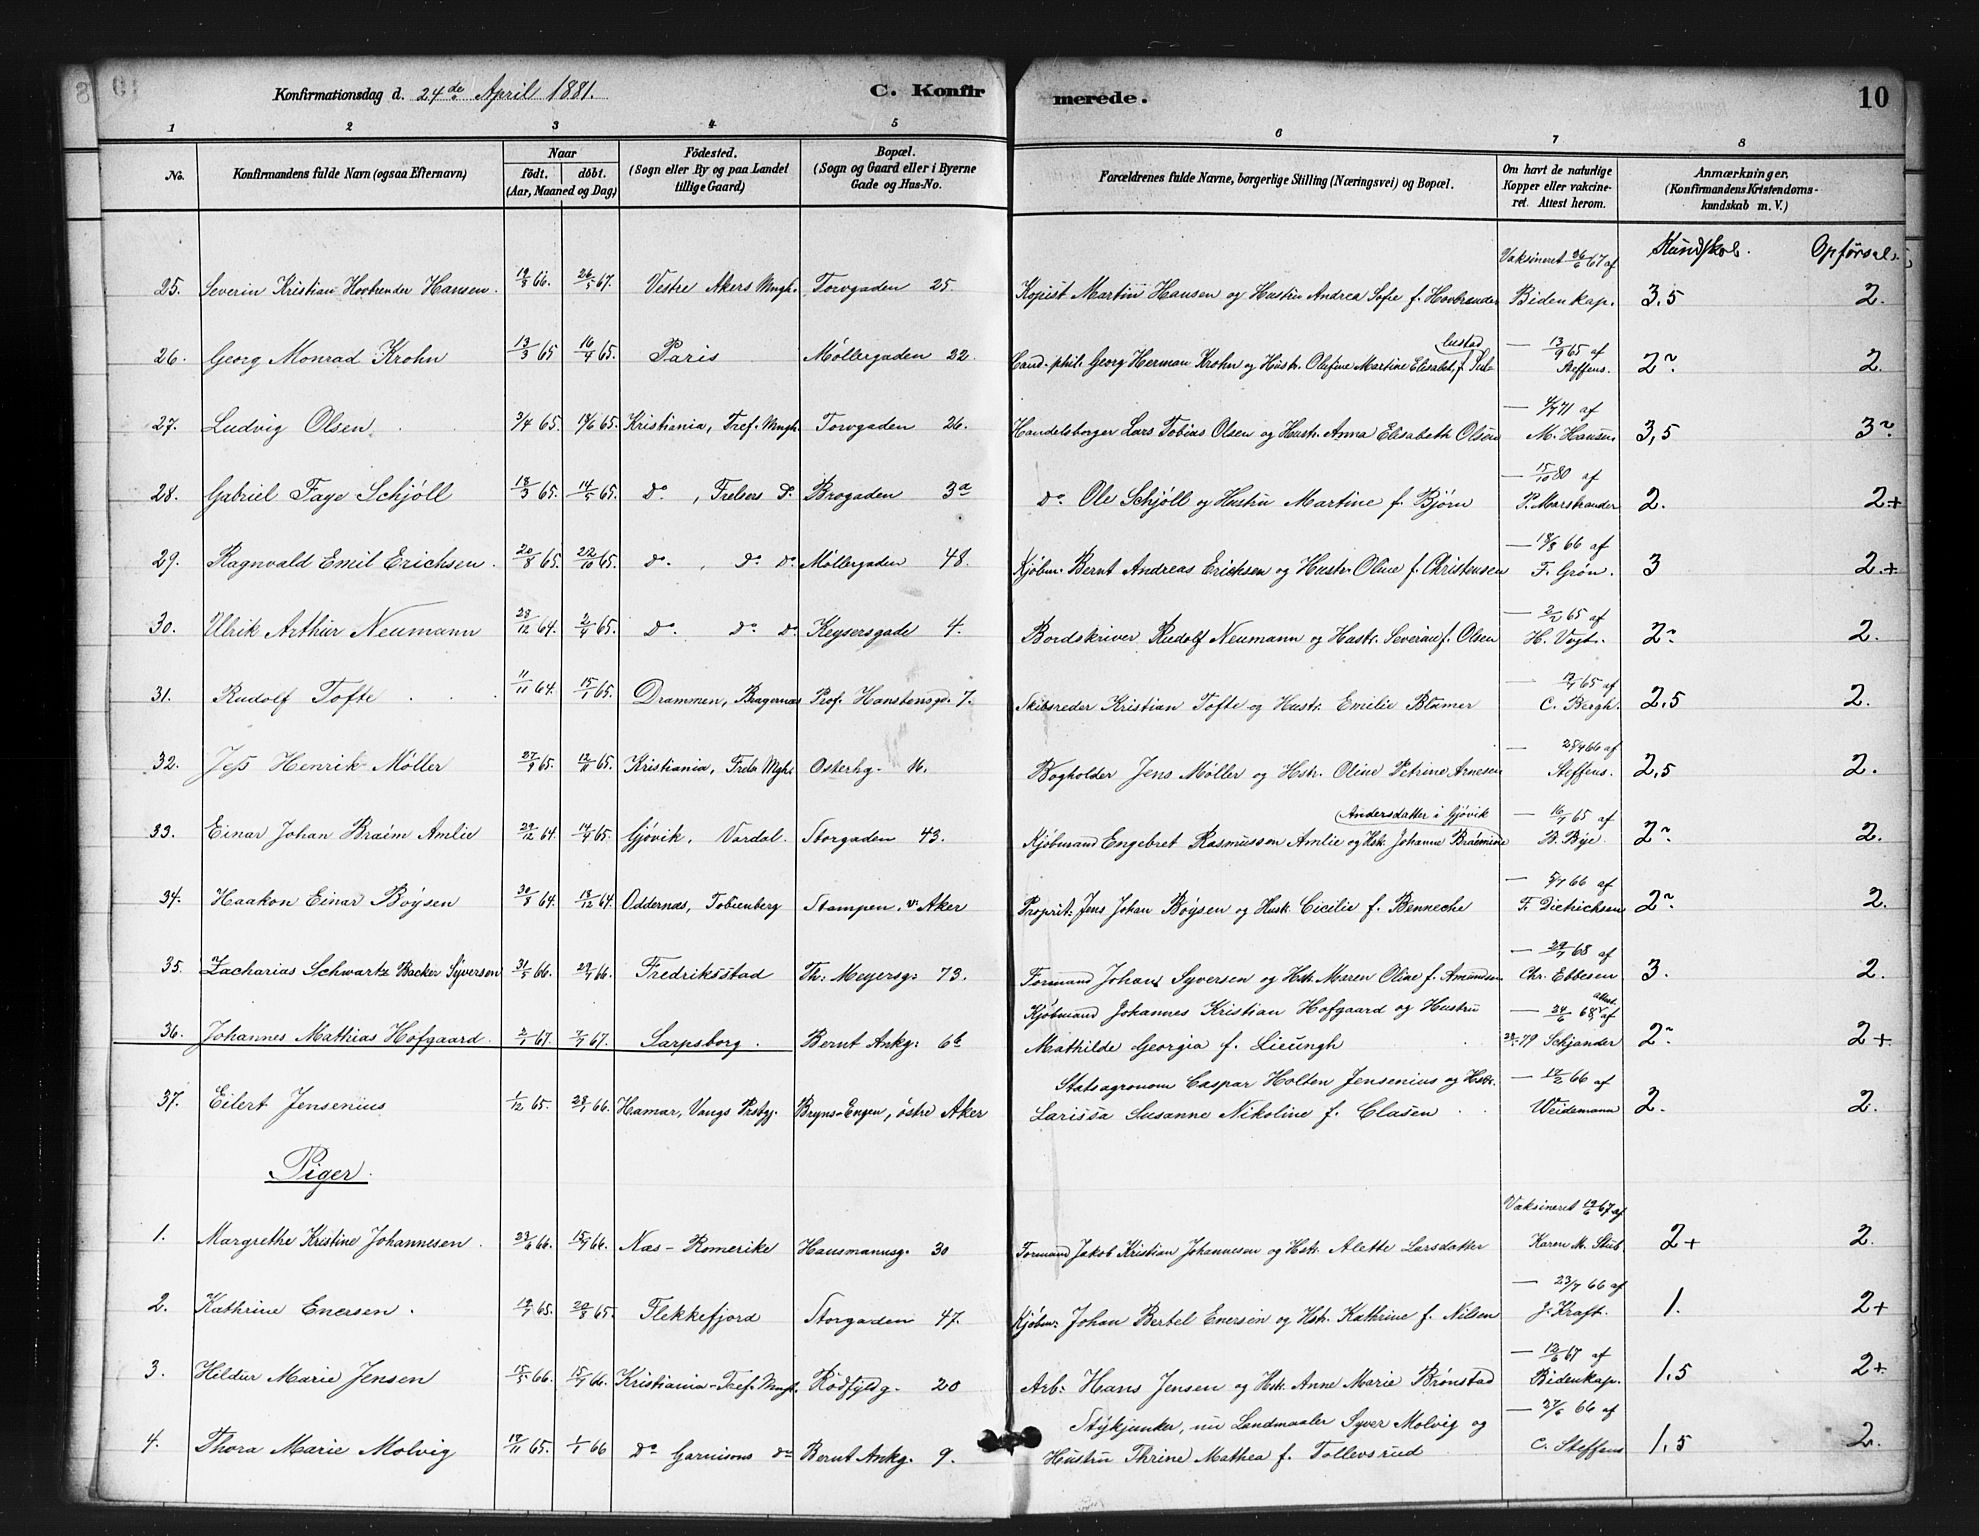 Konfirmationsdag d. 24de April 1881. C. Konfirmerede. 10
1 2 3 4 5 6 7 8
No. Konfirmandens fulde Navn (ogsaa Efternavn) Naar født. døbt. (Aar, Maaned og Dag) Fødested. (Sogn eller By og paa Landet tillige Gaard) Bopæl. (Sogn og Gaard eller i Byerne Gade og Hus-No. Forældrenes fulde Navne, borgerlige Stilling (Næringsvei) og Bopæl. Om havt de naturlige Kopper eller vakcineret. Attest herom. Anmærkninger. (Konfirmandens Kristendomskundskab m. V.)
Kundskab. Opførsel.
25. Severin Kristian Hovbrender Hansen. 19/3 66. 26/5 67. Vestre Akers Mngh. Torvgaden 25. Kopist Martin Hansen og Hustru Andrea Sofie f. Hovbrander Vaksineret 26/6 67 af Bidenkap. 3,5 2.
26. Georg Monrad Krohn 13/3 65 16/4 65. Paris Møllergaden 22. Cand. phil. Georg Herman Krohn og Hustr. Olefine Martine Elisabet f. — 13/9 65 af Steffens. 2~. 2.
27. Ludvig Olsen 3/4 65. 18/6 65. Kristiania, Tref. Mngh. Torvgaden 26. Handelsborger Lars Tobias Olsen og Hustr. Anna Elisabeth Olsen — 71 af M. Hansen 3,5 3~.
28. Gabriel Faye Schjøll 18/3 65. 14/5 65. do , Frelsers do Brogaden 3a do Ole Schjøll og Hustru Martine f. Bjørn — 15/10 80 af P. Marstrander 2. 2+
29. Ragnvald Emil Erichsen. 20/8 65. 22/10 65. do , do do Møllergaden 48. Kjøbm. Bernt Andreas Ericksen og Hustr. Oline f. Christensen — 18/8 66 af F. Grøn. 3 2.+
30. Ulrik Arthur Neumann 28/12 64. 2/4 65. do do do Keysersgade 4. Bordskriver Rudolf Neumann og Hustr. Severine f. Olsen — 2/2 65 af H. Vogt. 2~ 2.
31. Rudolf Tofte 11/11 64. 15/1 65. Drammen, Bragernæs Prof. Hanstensgd. 7. Skibsreder Kristian Tofte og Hustr. Emilie Blumer — 65 af C. Bergh. 2,5 2.
32. Jess Henrik Møller 27/9 65. 12/11 65. Kristiania, Frels Mgh. Osterhg. 16. Bogholder Jens Møller og Hstr. Oline Petrine Arnesen — 66 af Steffens. 2,5 2.
33. Einar Johan Braem Amlie 29/12 64. 14/4 65. Gjøvik, Vardal. Storgaden 43. Kjøbmand Engebret Rasmussen Amlie og Hst. Johanne Braemine Andersdatter i Gjøvik — 16/1 65 af B. Bye. 2~. 2.
34. Haakon Einar Bøysen 30/8 64. 18/12 64. Oddernæs, Tobienberg Stampen. v. Aker Proprit. Jens Johan Bøysen og Hustr. Cicilie f. Benneche — 66 af F. Dietrichsen 2~. 2.
35. Zacharias Schwartz Backer Syversen 31/5 66. 29/7 66. Fredriksstad Th. Meyersg. 73. Formand Johan Syversen og Hst. Maren Oline f. Amundsen — 29/7 68 af Chr. Ebbesen 3. 2.
36. Johannes Mathias Hofgaard. 2/1 67. 7/7 67. Sarpsborg. Bernt Ankg. 6b Kjøbmand Johannes Kristian Hofgaard og Hustru
Mathilde Georgia f. Lieungh — 24/6 68, attest. af 79 Schjander 2~. 2+
37. Eilert Jensenius 1/12 65. 28/1 66. Hamar, Vangs Prstgj. Bryns-Engen, østre Aker Statsagronom Caspar Holten Jensenius og Hstr.
Larissa Susanne Nikoline f. Clasen — 12/2 66 af Weidemann 2. 2.
Piger.
1. Margrethe Kristine Johannesen 23/6 66. 15/7 66. Næs - Romerike Hausmannsg. 30 Formand Jakob Kristian Johannesen og Hst. Alette Larsdatter Vaksineret 19/6 67 af Karen M. Stub 2+ 2.
2. Kathrine Enersen. 19/7 65. 20/8 65. Flekkefjord Storgaden 47. Kjøbm. Johan Bertel Enersen og Hst. Kathrine f. Nilsen — 23/7 66 af J. Kraft. 1. 2+
3. Hildur Marie Jensen 15/5 66. 15/7 66. Kristiania - Tref. Mngh. Rødfyldg. 20 Arb. Hans Jensen og Hst. Anne Marie Brønstad — 12/6 67 af Bidenkap. 1,5 2+
4. Thora Marie Molvig 19/11 65. 1/1 66 do Garnisons do Bernt Ankg. 9. Stykjunker, nu Landmaaler Syver Molvig og
Hustru Thrine Mathea f. Tollevsrud — 27/6 66 af C. Steffens 1,5 2.